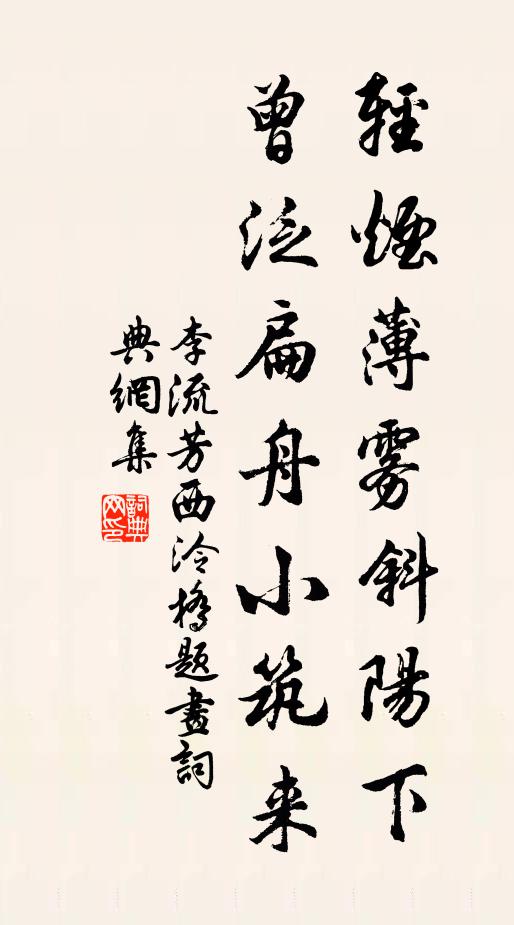 輕煙薄雾斜陽下
曾泛扁舟小筑来
李流芳西泠橋題畫詞
典網集
詞典网印